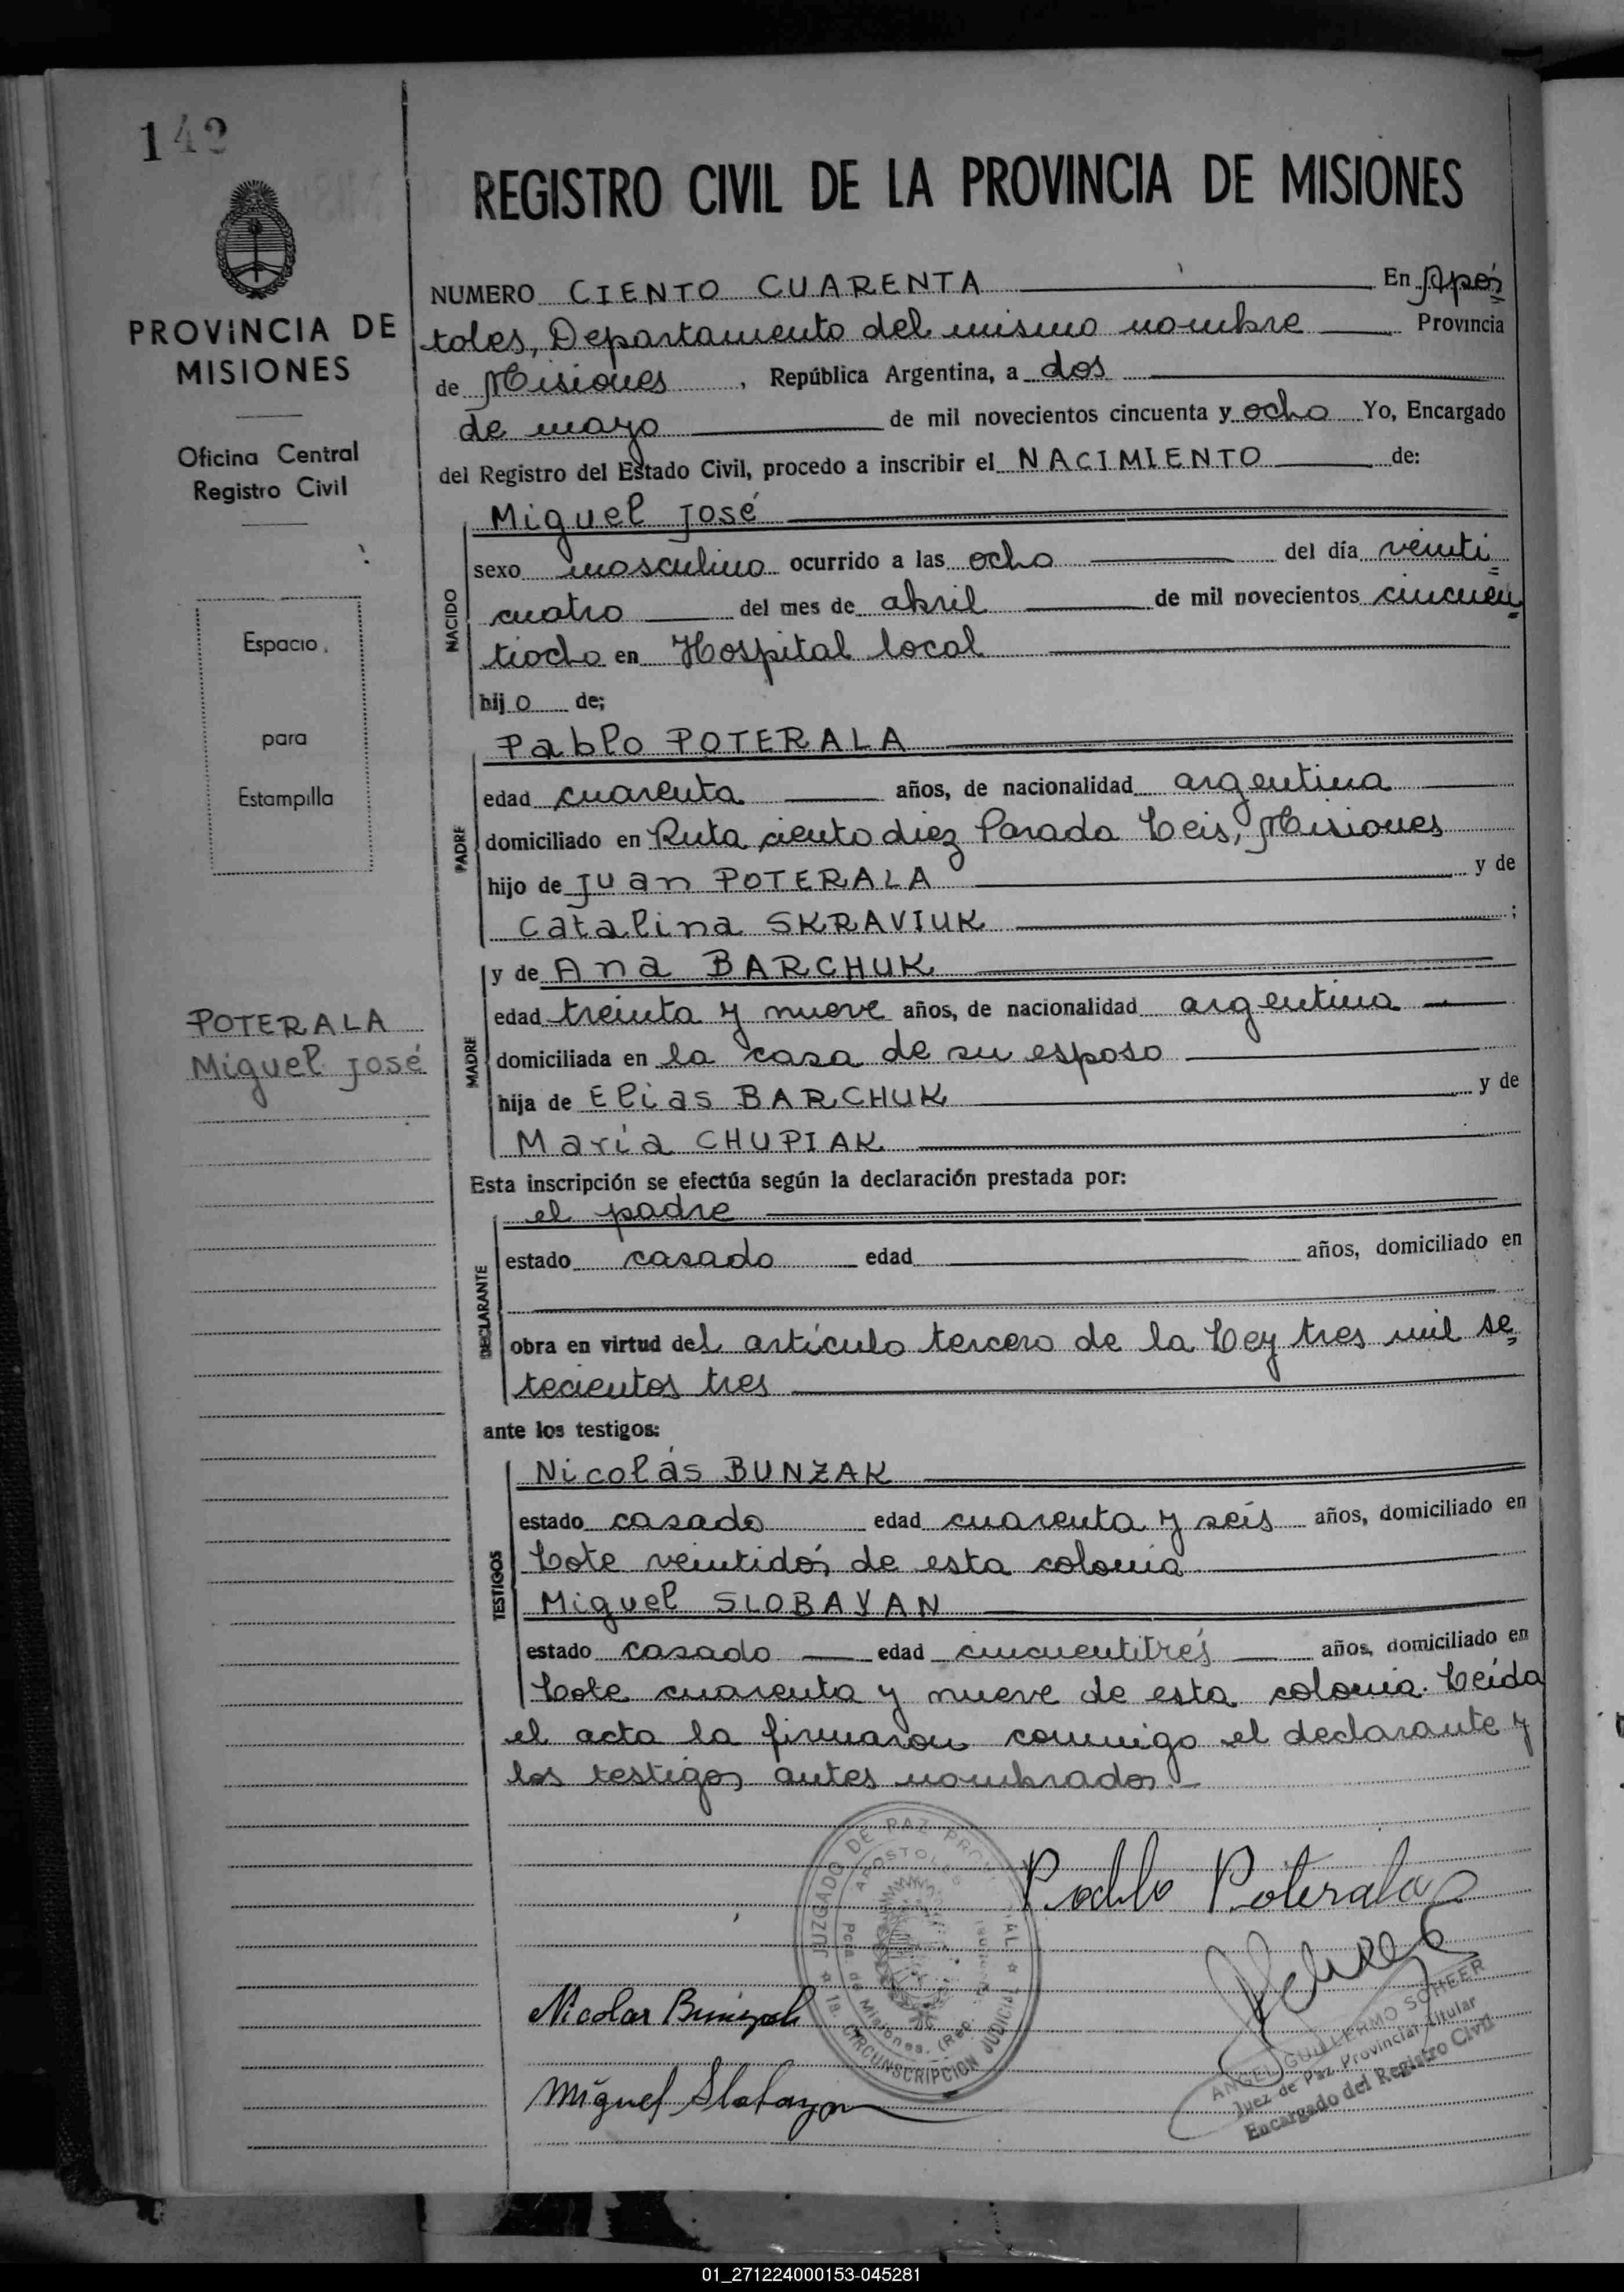 142
REGISTRO CIVIL DE LA PROVINCIA DE MISIONES
PROVINCIA DE
MISIONES
Oficina Central
Registro Civil
Espacio
para
Estampilla
POTERALA
Miguel José
NUMERO CIENTO CUARENTA En Após
toles, Departamento del mismo nombre Provincia
de Misiones, República Argentina, a dos
de mayo de mil novecientos cincuenta y ocho Yo, Encargado
del Registro del Estado Civil, procedo a inscribir el NACIMIENTO de:
NACIDO
Miguel José
sexo masculino ocurrido a las ocho del día veinti=
cuatro del mes de abril de mil novecientos cincuen=
tiocho en Hospital local
hijo de;
PADRE
Pablo POTERALA
edad cuarenta años, de nacionalidad argentina
domiciliado en Ruta ciento diez Parada Leis, Misiones
hijo de Juan POTERALA y de
Catalina SKRAVIUK ;
MADRE
y de Ana BARCHUK
edad treinta y nueve años, de nacionalidad argentina
domiciliada en la casa de su esposo
hija de Elias BARCHUK y de
María CHUPIAK
Esta inscripción se efectúa según la declaración prestada por:
DECLARANTE
el padre
estado casado edad años, domiciliado en
obra en virtud del artículo tercero de la Ley tres mil se=
tecientos tres
ante los testigos:
TESTIGOS
Nicolás BUNZAK
estado casado edad cuarenta y seis años, domiciliado en
Lote veintidós de esta colonia
Miguel SLOBAYAN
estado casado edad cincuentitrés años, domiciliado en
Lote cuarenta y nueve de esta colonia. Leída
el acta la firmaron conmigo el declarante y
los testigos antes nombrados.-
JUZGADO DE PAZ
CIRCUNSCRIPCION JUDICIAL
Pablo Poterala
ANGEL GUILLERMO SCHEER
Juez de Paz Provincial Titular
Encargado del Registro Civil
Nicolas Bunzak
Miguel Slobayan
01_271224000153-045281